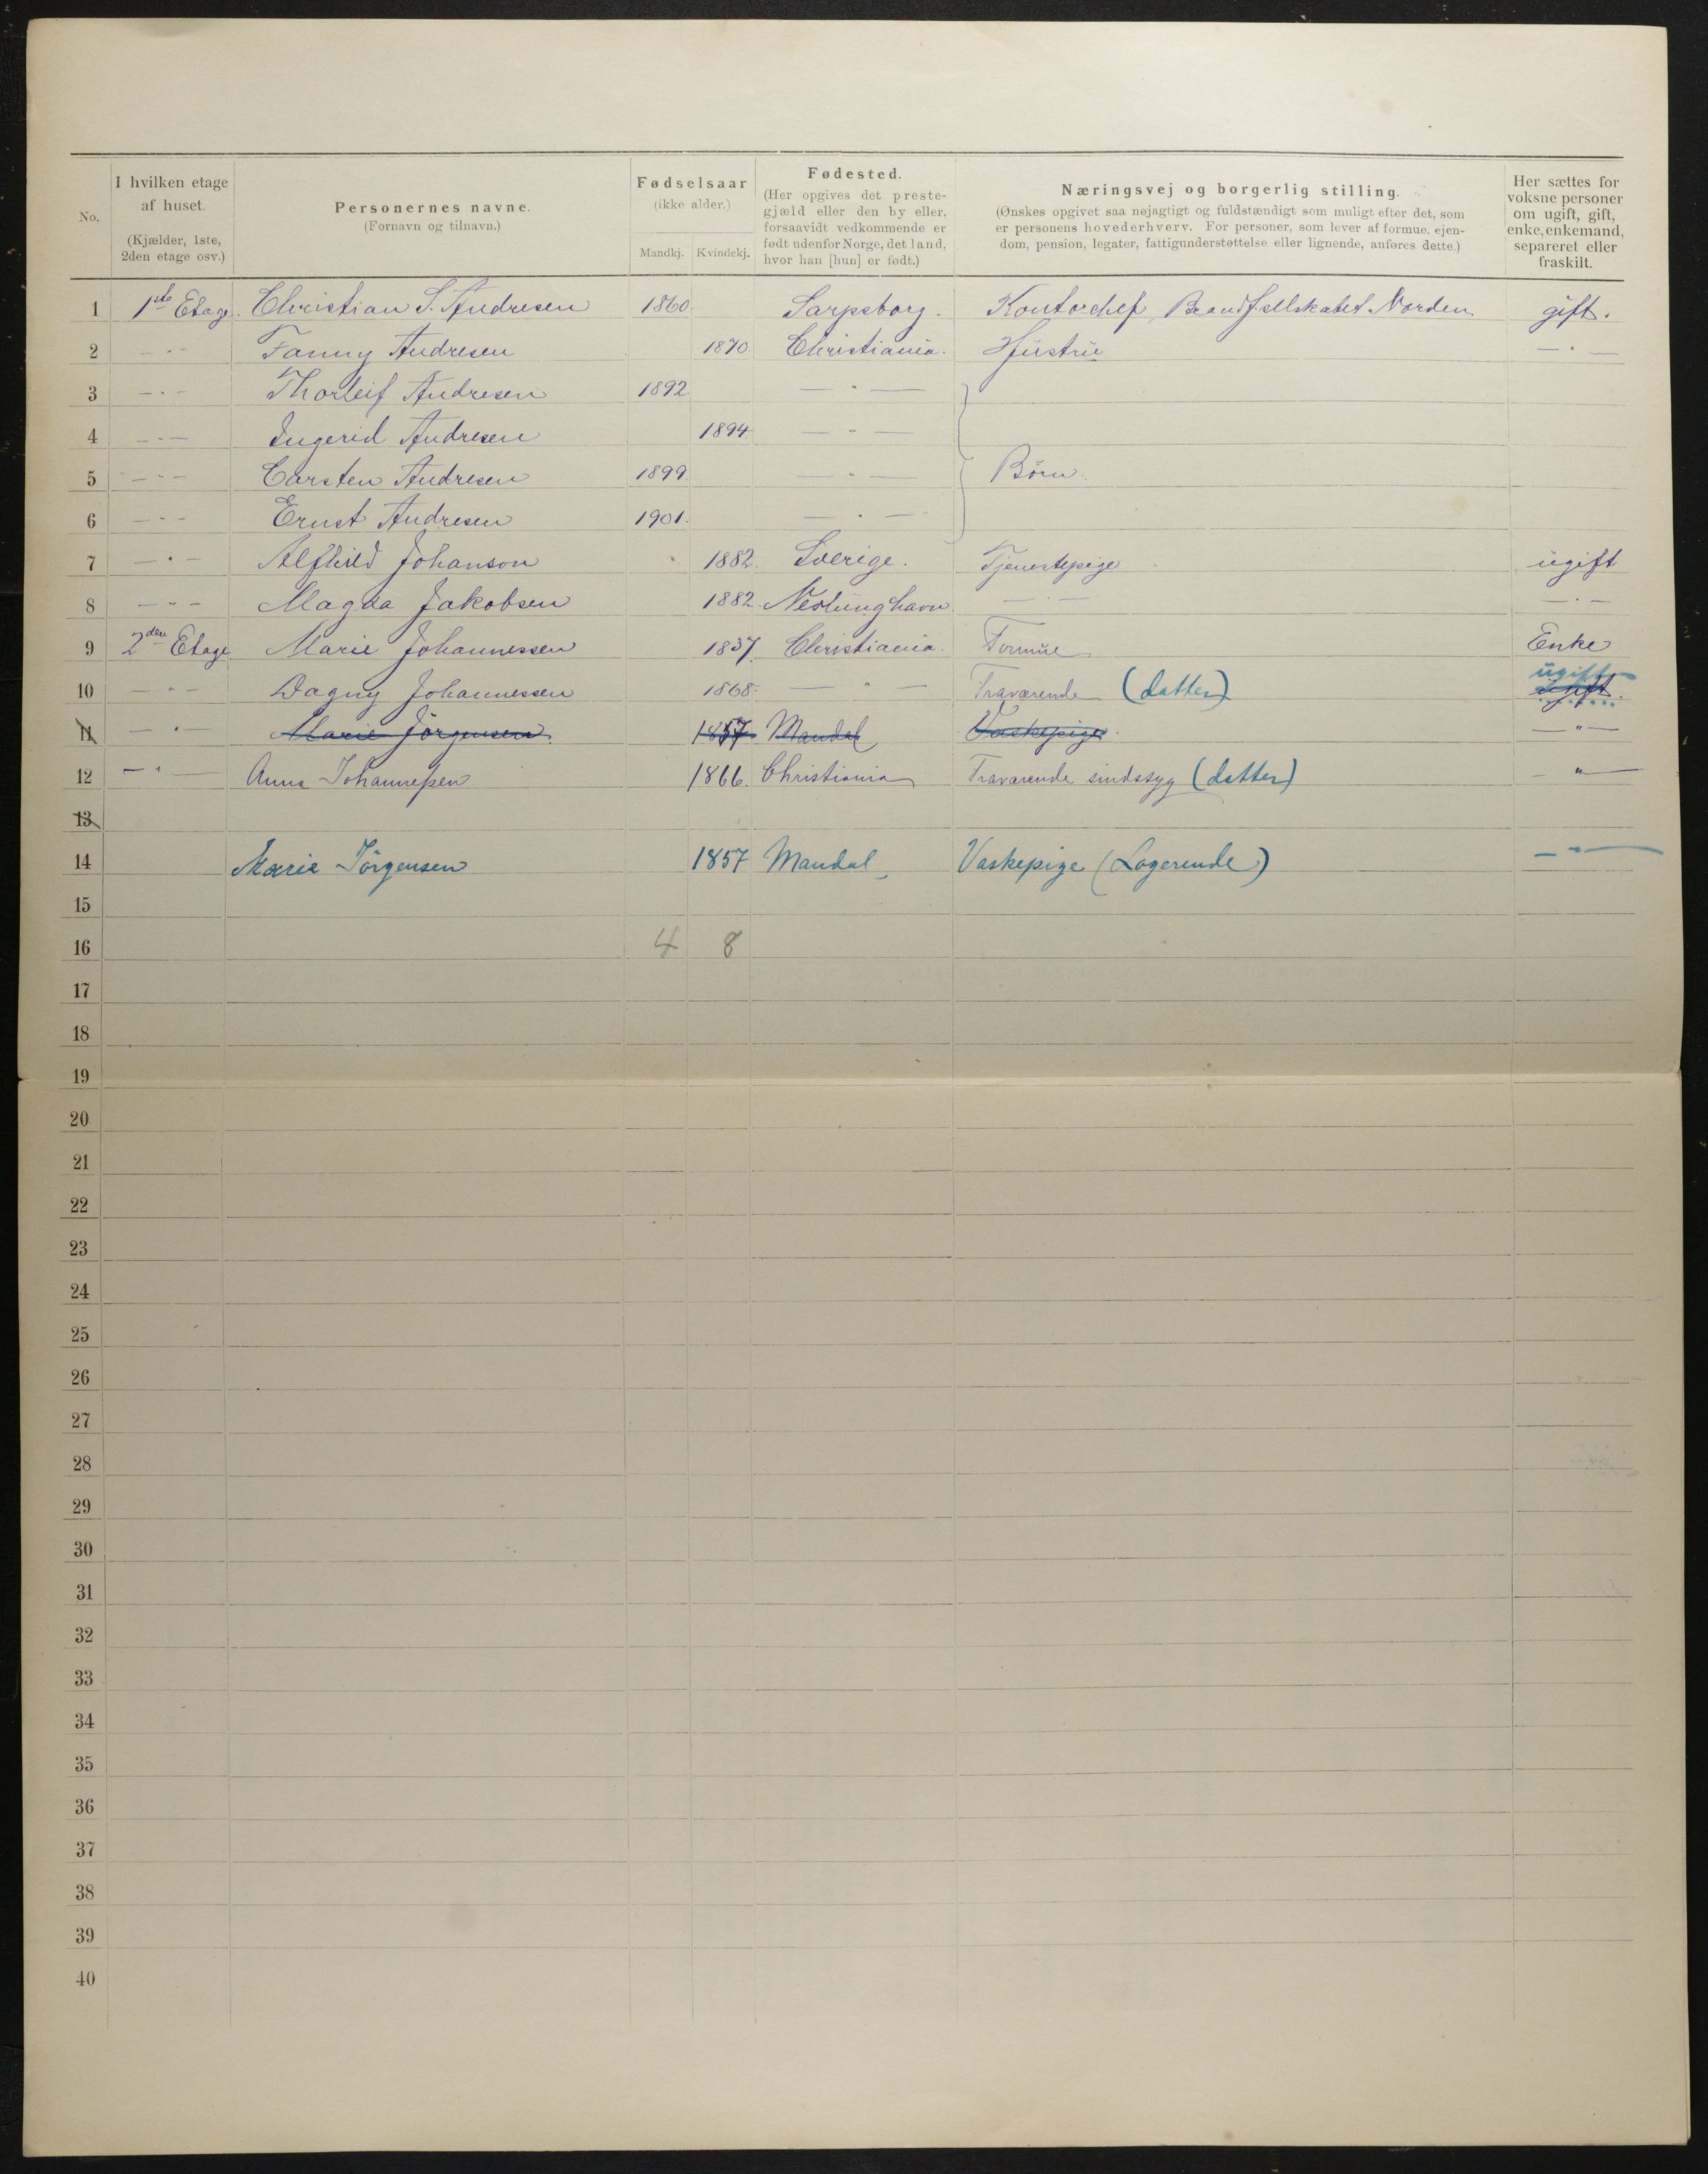 No. | I hvilken etage af huset. (Kjælder, 1ste, 2den etage osv.) | Personernes navne. (Fornavn og tilnavn.) | Fødselsaar (ikke alder.) Mandkj. | Kvindekj. | Fødested. (Her opgives det prestegjæld eller den by eller, forsaavidt vedkommende er født udenfor Norge, det land, hvor han [hun] er født.) | Næringsvej og borgerlig stilling. (Ønskes opgivet saa nøjagtigt og fuldstændigt som muligt efter det, som er personens hovederhverv. For personer, som lever af formue, ejendom, pension, legater, fattigunderstøttelse eller lignende, anføres dette.) | Her sættes for voksne personer om ugift, gift, enke, enkemand, separeret eller fraskilt.
1 1ste Etage. Christian S. Andresen 1860. Sarpsborg. Kontorchef Brandf.selskabet Norden gift.
2 — " — Fanny Andresen 1870. Christiania. Hustru — " —
3 — " — Thorleif Andresen 1892. — " —
4 — " — Ingerid Andresen 1894 — " —
5 — " — Carsten Andresen 1899. — " — Børn.
6 — " — Ernst Andresen 1901. — " —
7 — " — Alfhild Johanson 1882. Sverige. Tjenestepige ugift
8 — " — Magda Jakobsen 1882. Neslunghavn — " — — " —
9 2den Etage Marie Johannessen 1837. Christiania. Formue Enke
10 — " — Dagny Johannessen 1868. — " — Fraværende (datter) ugift ugift.
11 — " — Marie Jørgensen. 1857 Mandal Vaskepige. — " —
12 — " — Anna Johannessen 1866. Christiania Fraværende sindssyg (datter) — " —
13
14 Marie Jørgensen 1857 Mandal Vaskepige (Logerende) — " —
15
16 4 8
17
18
19
20
21
22
23
24
25
26
27
28
29
30
31
32
33
34
35
36
37
38
39
40